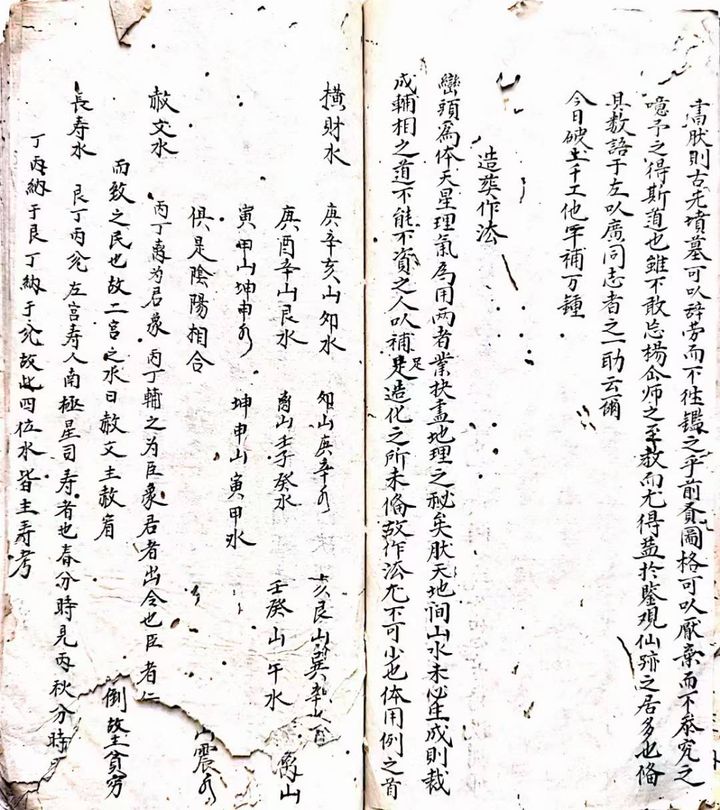 書肤則古先墳墓可以辞劳而不徃鑑之乎前賢圖格可以厭棄而不叅究之
噫予之得斯道也雖不敢忘楊仙师之至教而尤得益扵鑒观仙跡之居多也偹
具数語于左以廣同志者之一助云爾
今日破土千工他罕補万鐘
造葬作法
巒頭為体天星理氣為用两者業抉盡地理之秘矣肰天地间山水未必生成則裁
成輔相之道不能不資之人以補足造化之所未偹故作法尤不可少也体用例之首
横財水 庚辛亥山卯水 卯山庚辛水 亥艮山巽
庚酉辛山艮水 离山壬子癸水 壬癸山午水 离山
寅甲山坤申水 坤申山寅甲水 山震水
俱是陰陽相合
赦文水 丙丁离为君象丙丁輔之为臣象君者出令也臣者仁
而致之民也故二宫之水曰赦文主赦宥 倒故主貧穷
長寿水 艮丁丙兊左宫寿人南極星司寿者也春分時見丙秋分時
丁丙納于艮丁納于兊故此四位水皆主寿考